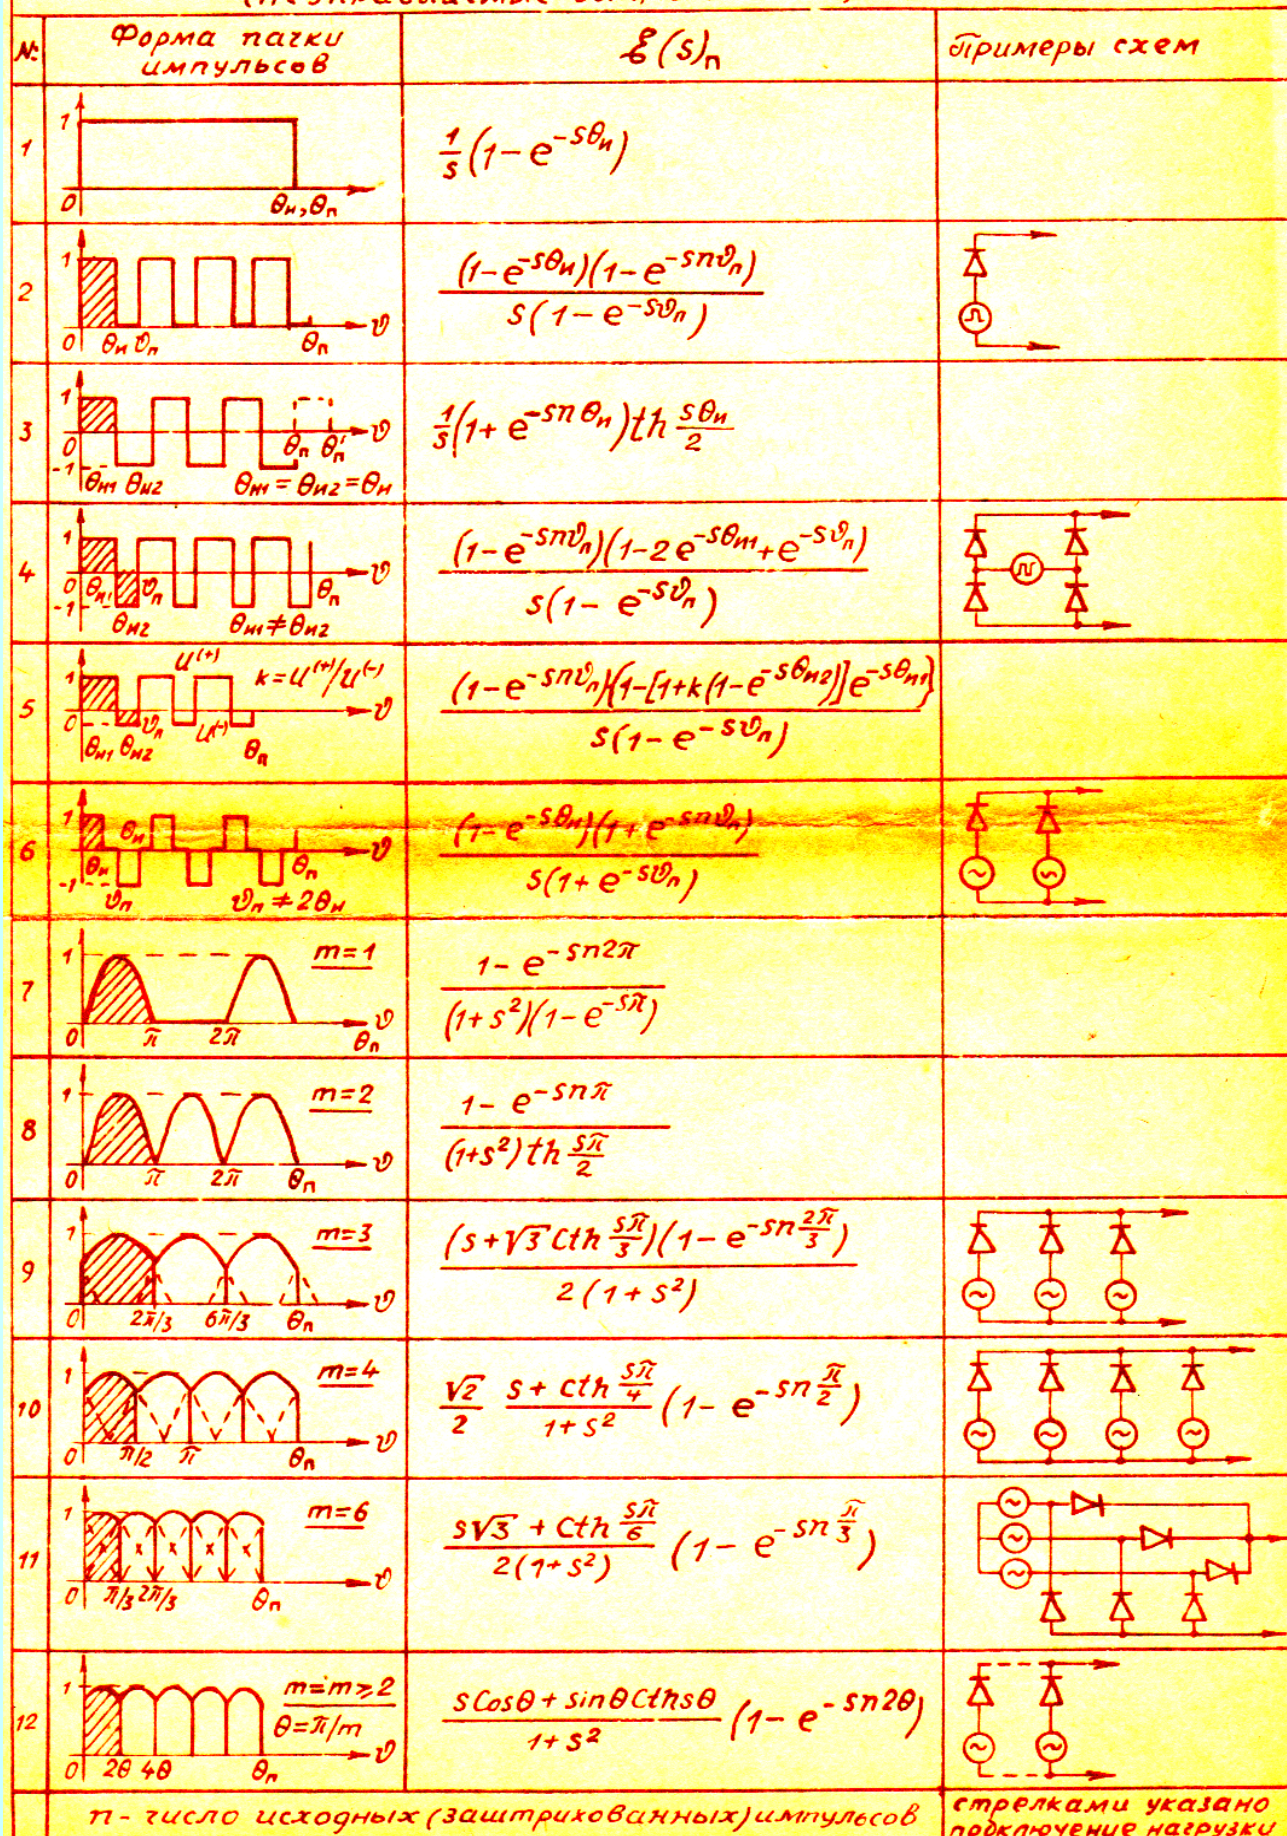 № Форма пачки импульсов ℒ(s)ₙ Примеры схем
1
1 0 θи, θп
1/s (1 - e^(-sθи))
2
1 0 θи ϑп θп ϑ
(1 - e^(-sθи))(1 - e^(-snϑп)) / s(1 - e^(-sϑп))
3
1 0 -1 θи1 θи2 θп θп' ϑ
θи1 = θи2 = θи
1/s (1 + e^(-snθи)) th sθи/2
4
1 0 -1 θи1 ϑп θп ϑ
θи2 θи1 ≠ θи2
(1 - e^(-snϑп))(1 - 2e^(-sθи1) + e^(-sϑп)) / s(1 - e^(-sϑп))
5
u⁽⁺⁾ k = u⁽⁺⁾/u⁽⁻⁾
1 0 ϑп u⁽⁻⁾ ϑ
θи1 θи2 θп
(1 - e^(-snϑп)){1 - [1 + k(1 - e^(-sθи2))]e^(-sθи1)} / s(1 - e^(-sϑп))
6
1 0 -1 θи θи θп ϑ
ϑп ϑп ≠ 2θи
(1 - e^(-sθи))(1 + e^(-snϑп)) / s(1 + e^(-sϑп))
7
m = 1
1 0 π 2π θп ϑ
1 - e^(-sn2π) / (1 + s²)(1 - e^(-sπ))
8
m = 2
1 0 π 2π θп ϑ
1 - e^(-snπ) / (1 + s²) th sπ/2
9
m = 3
1 0 2π/3 6π/3 θп ϑ
(s + √3 cth sπ/3)(1 - e^(-sn 2π/3)) / 2(1 + s²)
10
m = 4
1 0 π/2 π θп ϑ
√2/2 (s + cth sπ/4) / (1 + s²) (1 - e^(-sn π/2))
11
m = 6
1 0 π/3 2π/3 θп ϑ
(s√3 + cth sπ/6) / 2(1 + s²) (1 - e^(-sn π/3))
12
m = m ≥ 2
θ = π/m
1 0 2θ 4θ θп ϑ
(s Cosθ + sinθ Cthsθ) / (1 + s²) (1 - e^(-sn2θ))
n - число исходных (заштрихованных) импульсов
стрелками указано
подключение нагрузки